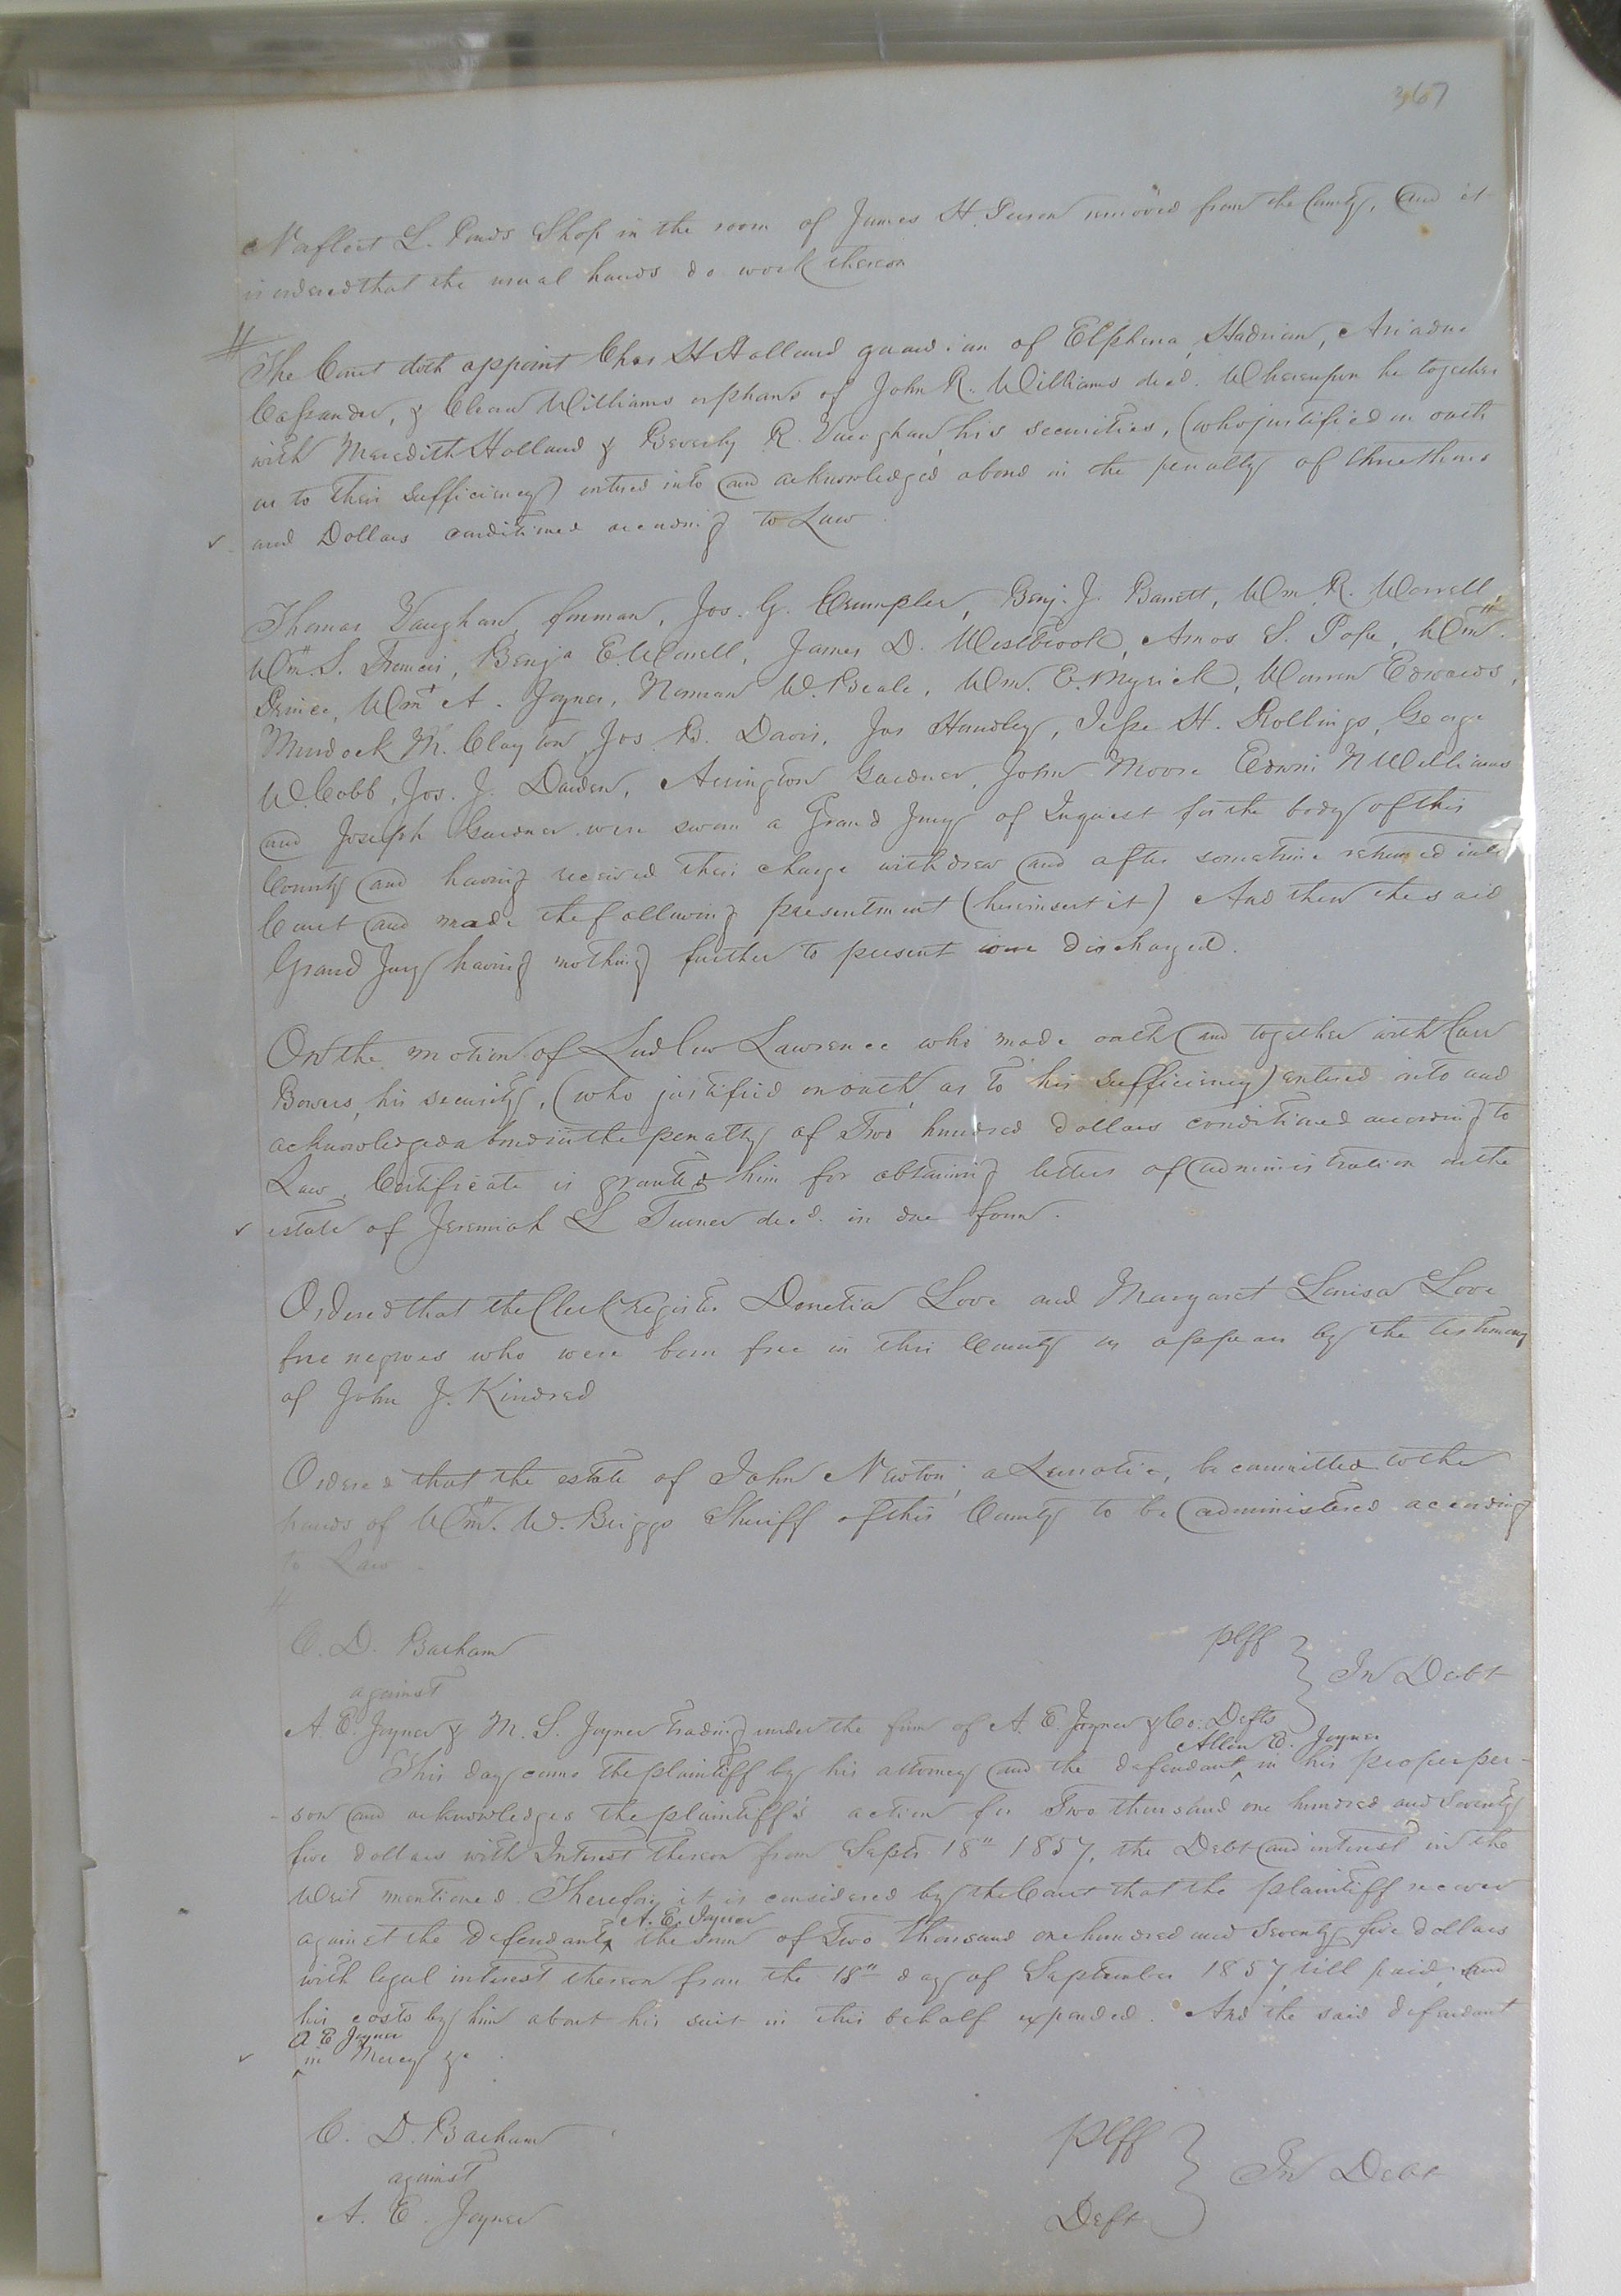 367
Norfleet L. Ponds Shop in the room of James H. Person removed from the County, and it
is ordered that the usual hands do work thereon
The Court doth appoint Chas H Holland guardian of Elphena, Hadrian, Ariadne
Cassander, & Williams orphans of John R. Williams decd. Whereupon he together
with Meredith Holland & Beverly R. Vaughan his securities, (who justified on oath
as to their sufficiency) entered into and acknowledged a bond in the penalty of three thous
and Dollars conditioned according to Law.
Thomas Vaughan foreman, Jos. G. Crumpler, Benj. J. Barrett, Wm R. Worrell,
Wm. S. Francis, Benja E. Worrell, James D. Westbrook, Amos S. Pope, Wm.
Prince, Wm A. Joyner, Norman W. Beale, Wm. E. Myrick, Warren Edwards,
Murdock M. Clayton, Jos. B. Davis, Jas Handley, Jesse H. Rollings, George
W. Cobb, Jos. J. Darden, Arrington Gardner, John Moore Edwin N Williams
and Joseph Gardner were sworn a Grand Jury of Inquest for the body of this
County and having received their charge withdrew and after sometime returned into
Court and made the following presentment (here insert it) And then the said
Grand Jury having nothing further to present were discharged.
On the motion of Ludlow Lawrence who made oath and together with Carr
Bowers, his security, (who justified on oath as to his sufficiency) entered into and
acknowledged a bond in the penalty of Two hundred dollars conditioned according to
Law, Certificate is granted him for obtaining letters of administration on the
estate of Jeremiah L Turner decd. in due form.
Ordered that the Clerk register Donetia Love and Margaret Louisa Love
free negroes who were born free in this County as appears by the testimony
of John J. Kindred
Ordered that the estate of John Newton, a Lunatic, be committed to the
hands of Wm. W. Briggs Sheriff of this County to be administered according
to Law.
C. D. Barham Plff
against In Debt
A. E. Joyner & M. S. Joyner trading under the firm of A. E. Joyner & Co. Defts
Allen E. Joyner
This day came the plaintiff by his attorney and the defendant ^ in his proper per-
-son and acknowledges the plaintiff's action for Two thousand one hundred and Seventy
five dollars with Interest thereon from Septr. 18" 1857, the Debt and interest in the
Writ mentioned. Therefore it is considered by the Court that the plaintiff recover
A. E. Joyner
against the Defendants ^ the sum of Two thousand one hundred and Seventy five dollars
with legal interest thereon from the 18" day of September 1857, till paid, and
his costs by him about his suit in this behalf expended. And the said defendant
A E Joyner
^ in Mercy &c
C. D. Barham Plff
against In Debt
A. E. Joyner Deft